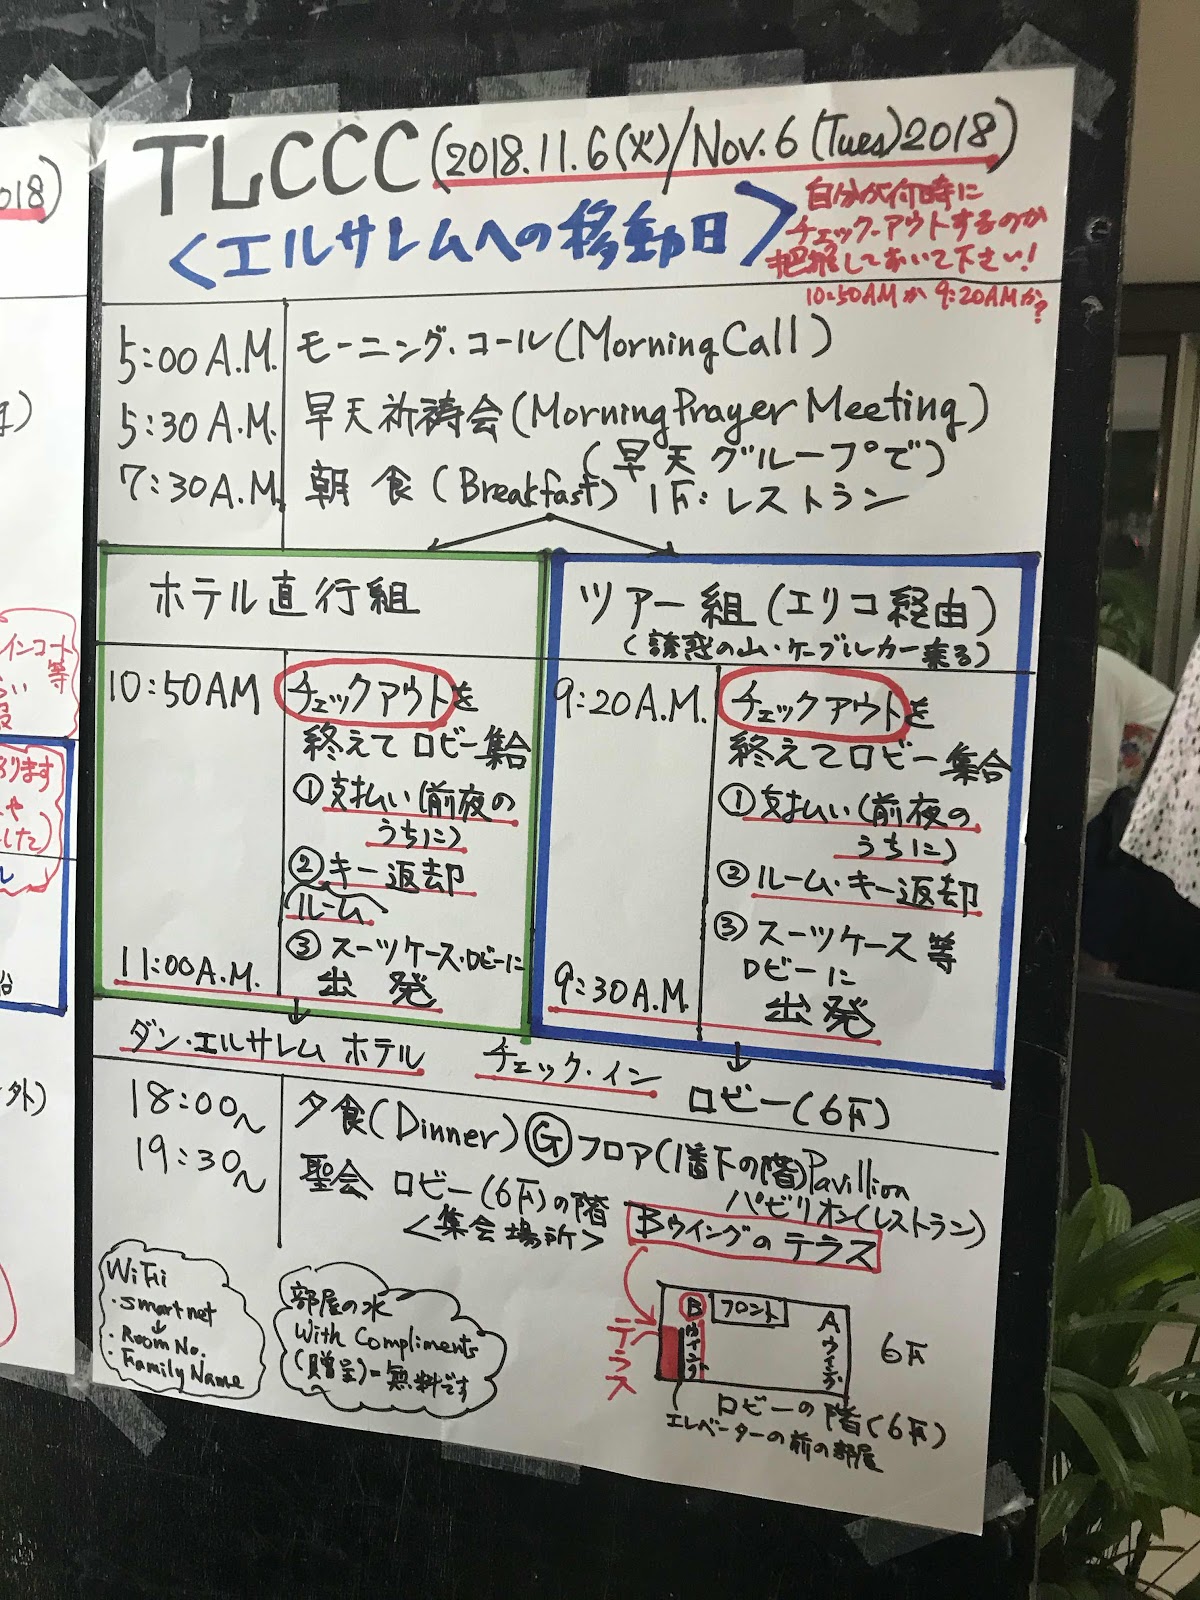 TLCCC (2018.11.6(火)/Nov.6(Tues)2018)
<エルサレムへの移動日>
自分が何時に
チェックアウトするのか
把握しておいて下さい!
10:50AMか9:20AMか?
5:00A.M. モーニング・コール(Morning Call)
5:30A.M. 早天祈祷会(Morning Prayer Meeting)
(早天グループで)
7:30A.M. 朝食(Breakfast) 1F:レストラン
ホテル直行組
10:50AM チェックアウトを
終えてロビー集合
①支払い(前夜の
うちに)
②キー返却
ルーム
③スーツケース・ロビーに
11:00A.M. 出発
ツアー組(エリコ経由)
(誘惑の山・ケーブルカー乗る)
9:20A.M. チェックアウトを
終えてロビー集合
①支払い(前夜の
うちに)
②ルーム・キー返却
③スーツケース等
ロビーに
9:30A.M. 出発
ダン・エルサレムホテル チェック・イン ロビー(6F)
18:00~ 夕食(Dinner)Ⓖフロア(1番下の階)Pavillion
パビリオン(レストラン)
19:30~ 聖会 ロビー(6F)の階
<集会場所> Bウイングのテラス
WiFi
・smartnet
↓
・Room No.
・Family Name
部屋の水
With Compliments
(贈呈)=無料です
B ウイング
フロント
Aウイング
6F
テラス
ロビーの階(6F)
エレベーターの前の部屋
018)
インコート
等
ります
や
した)
外)